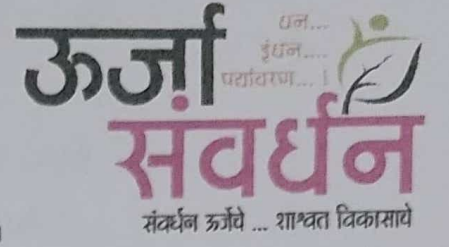 ऊर्जा
धन...
इंधन....
पर्यावरण... !
संवर्धन
संवर्धन ऊर्जेचे ... शाश्वत विकासाचे